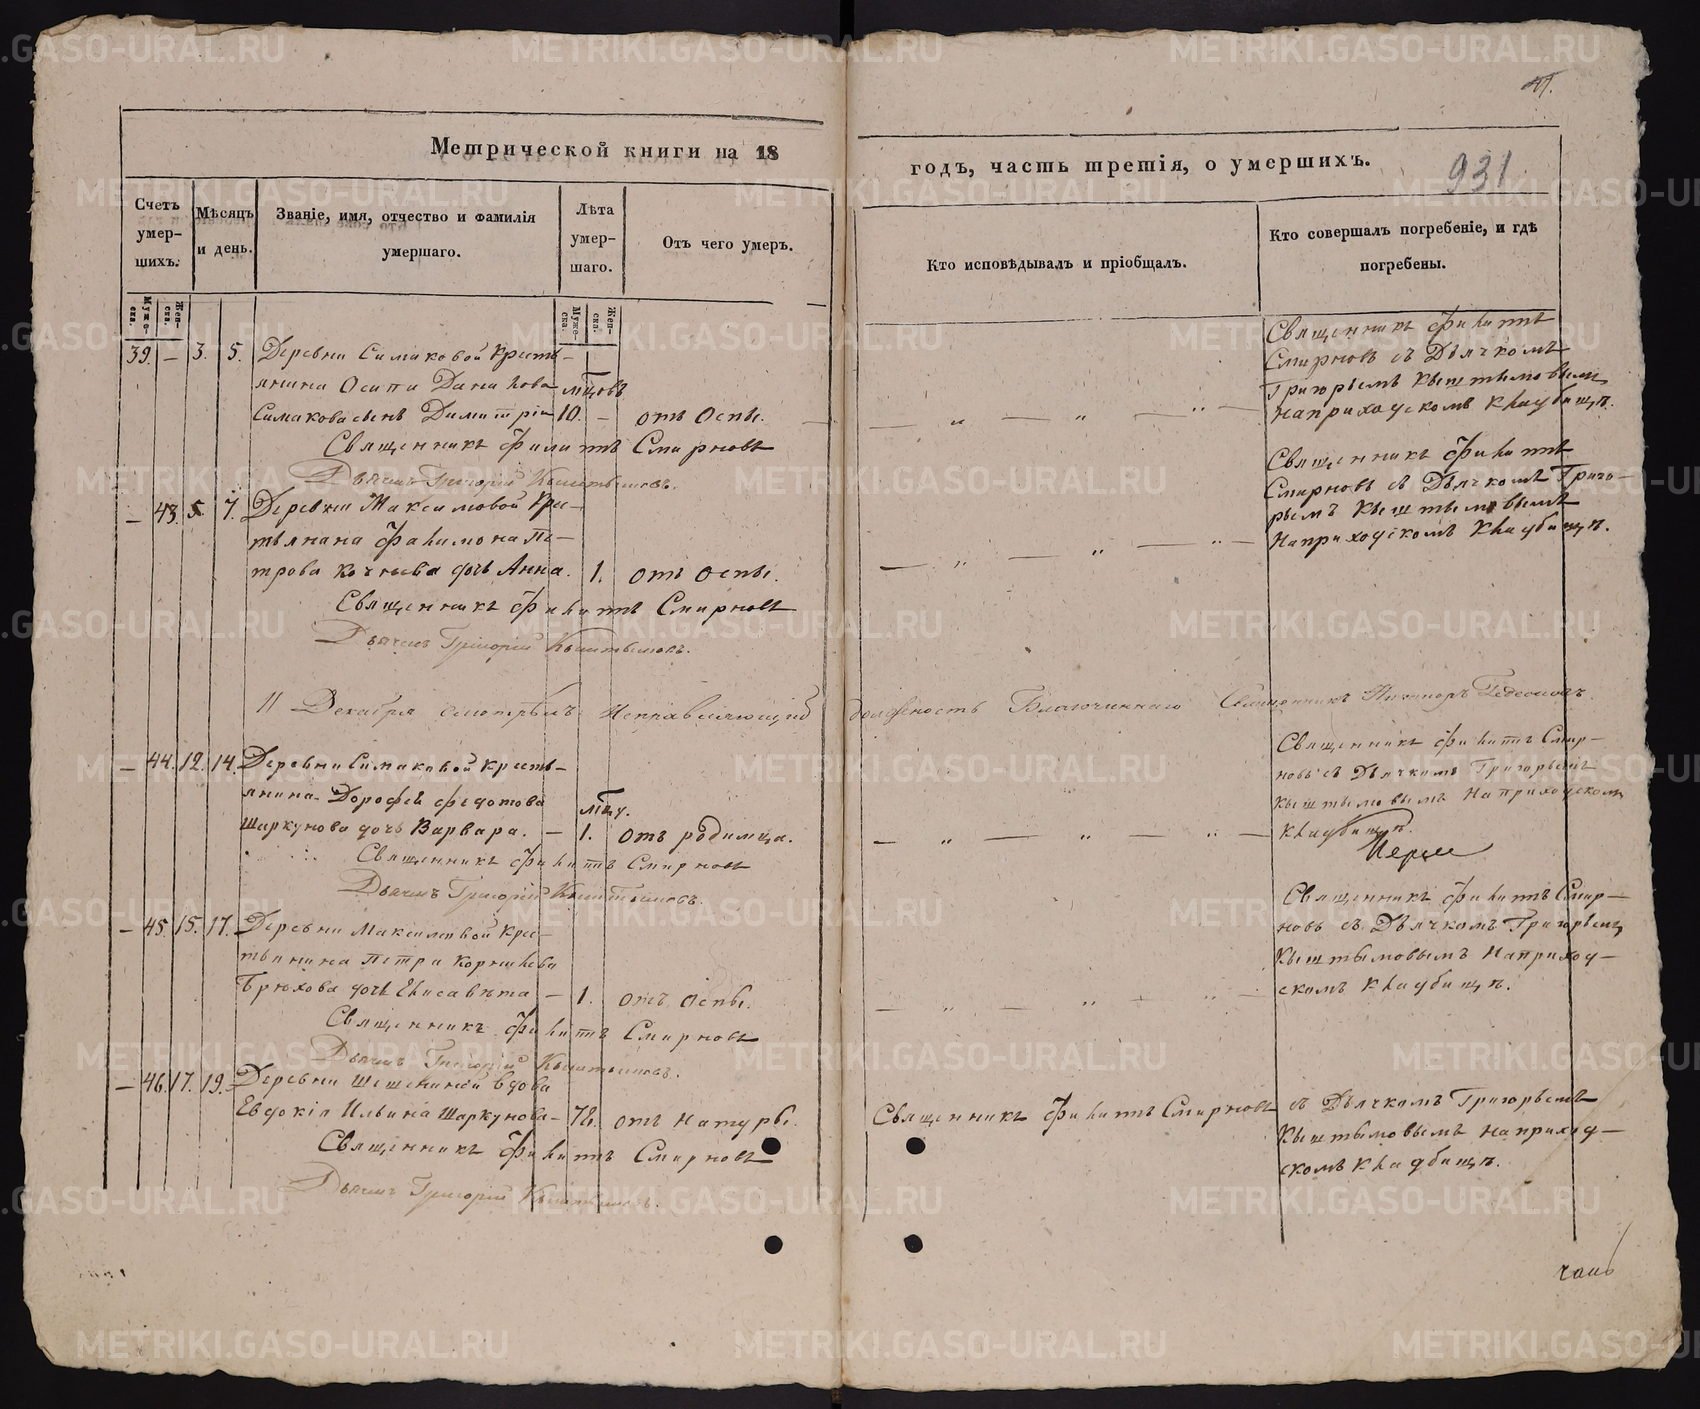 Метрической книги на 18
годъ, часть третія, о умершихъ.
931
Счетъ умер-шихъ.
Мѣсяцъ и день.
Званіе, имя, отчество и фамилія умершаго.
Лѣта умер-шаго.
Отъ чего умеръ.
Кто исповѣдывалъ и пріобщалъ.
Кто совершалъ погребеніе, и гдѣ погребены.
Муже-ска.
Жен-ска.
Муже-ска.
Жен-ска.
39. — 3. 5. Деревни Симаковой кресть-
янина Осипа Данилова мѣсцовъ
Симакова сынъ Димитрій 10. — отъ Оспы.
Священникъ Филиппъ Смирновъ
Дьячекъ Григорій Кыштымовъ.
Священникъ Филиппъ
Смирновъ съ Дьячкомъ
Григорьемъ Кыштымовымъ
На приходскомъ кладбищѣ.
— 43. 5. 7. Деревни Максимовой Крес-
тьянина Филимона Пе-
трова Кочнева дочь Анна. 1. отъ Оспы.
Священникъ Филиппъ Смирновъ
Дьячекъ Григорій Кыштымовъ.
Священникъ Филиппъ
Смирновъ съ Дьячкомъ Григо-
рьемъ Кыштымовымъ
На приходскомъ Кладбищѣ.
11 Декабря смотрѣлъ Исправляющій должность Благочиннаго Священникъ Никаноръ Гедеоновъ.
— 44. 12. 14. Деревни Симаковой кресть-
янина Дорофея Федотова мѣсц.
Шаркунова дочь Варвара. — 1. отъ родимца.
Священникъ Филиппъ Смирновъ
Дьячекъ Григорій Кыштымовъ.
Священникъ Филиппъ Смир-
новъ съ Дьячкомъ Григорьемъ
Кыштымовымъ На приходскомъ
кладбищѣ.
— 45. 15. 17. Деревни Максимовой Крес-
тьянина Петра Корнилова
Брюхова дочь Елисавета — 1. отъ Оспы.
Священникъ Филиппъ Смирновъ
Дьячекъ Григорій Кыштымовъ.
Священникъ Филиппъ Смир-
новъ съ Дьячкомъ Григорьемъ
Кыштымовымъ На приход-
скомъ Кладбищѣ.
— 46. 17. 19. Деревни Шешениной вдова
Евдокія Ильина Шаркунова — 78. отъ Натуры.
Священникъ Филиппъ Смирновъ
Дьячекъ Григорій Кыштымовъ.
Священникъ Филиппъ Смирновъ съ Дьячкомъ Григорьемъ
Кыштымовымъ На приход-
скомъ Кладбищѣ.
METRIKI.GASO-URAL.RU